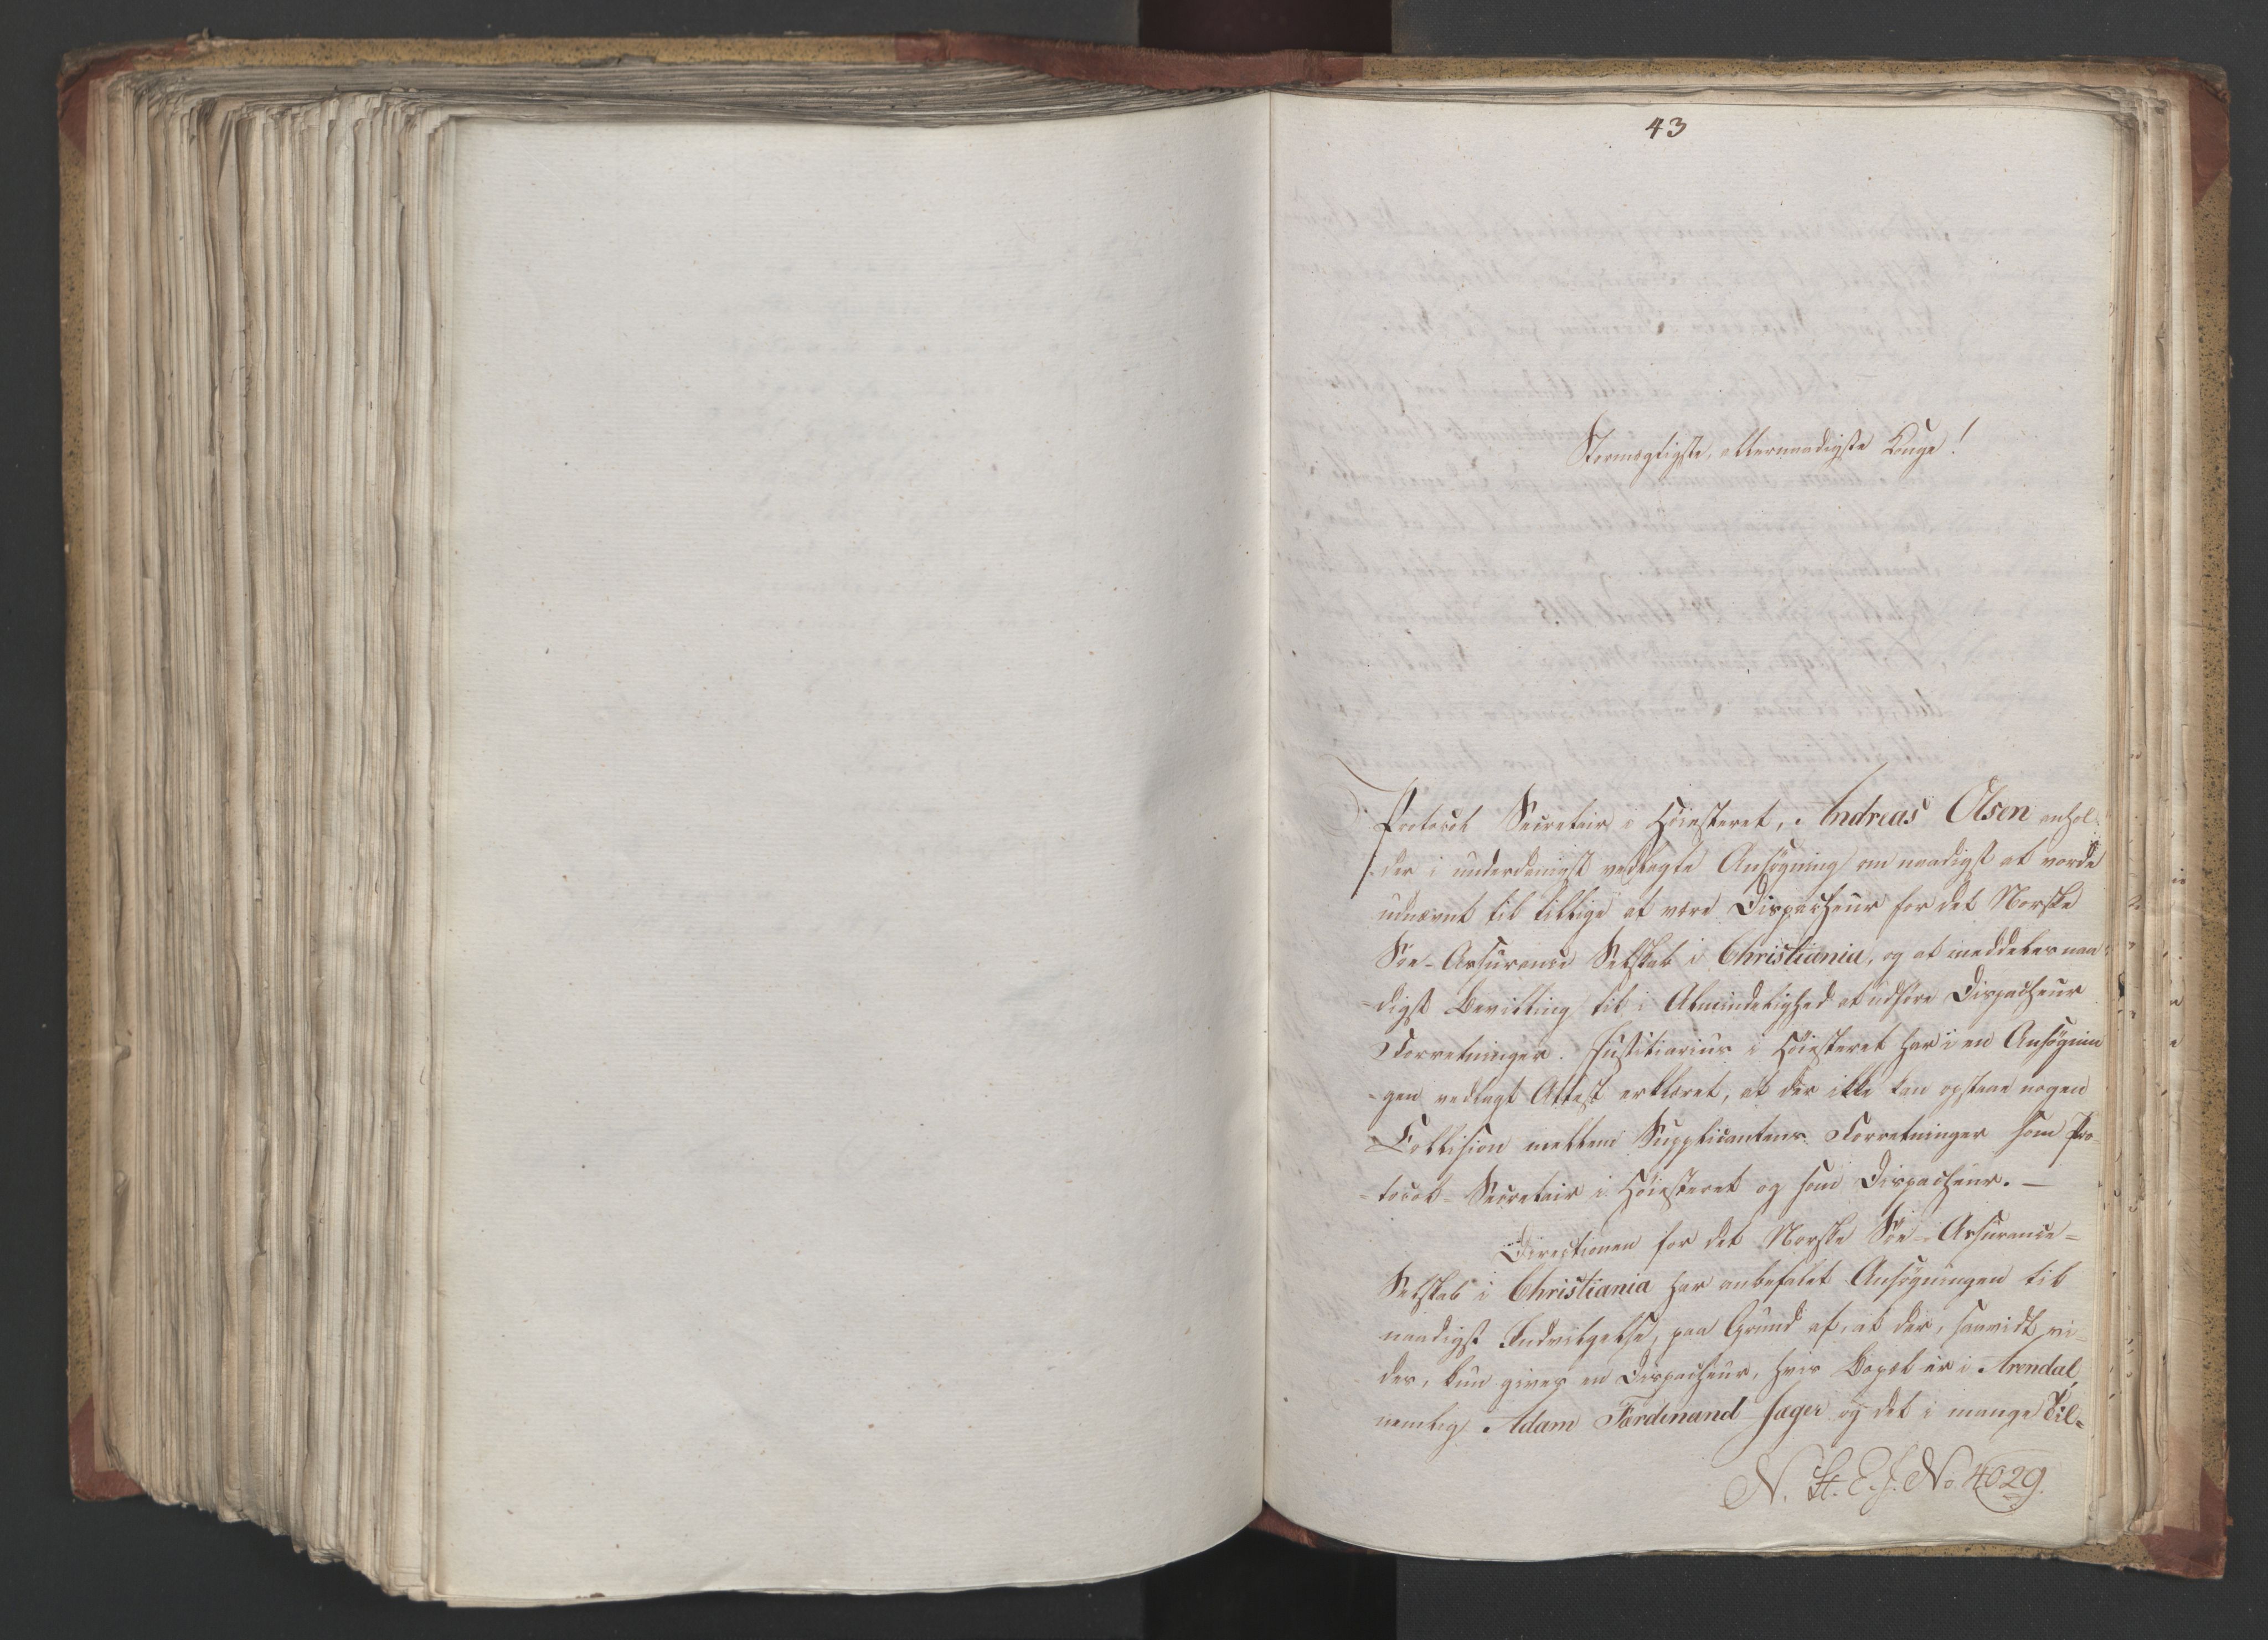 43
Stormægtigste, allernaadigste Konge!
Protocol Secretair i Höiesteret, Andreas Olsen anhol-
der i underdanigst vedlagte Ansøgning om naadigst at vorde
udnævnt til tillige at være Dispacheur for det Norske
Söe-Assurance Selskab i Christiania, og at meddeles naa-
digst Bevilling til i Almindelighed at udføre Dispacheur
Forretninger. Justitiarius i Höiesteret har i en Ansøgnin-
gen vedlagt Attest erklæret, at der ikke kan opstaae nogen
Collision mellem Supplicantens Forretninger som Pro-
tocol-Secretair i Höiesteret og som Dispacheur. —
Directionen for det Norske Söe-Assurance-
Selskab i Christiania har anbefalet Ansøgningen til
naadigst Indvilgelse, paa Grund af, at der, saavidt vi-
des, kun gives en Dispacheur, hvis Bopæl er i Arendal,
nemlig Adam Ferdinand Jæger og det i mange Til-
N. St. E. J. No. 4029.